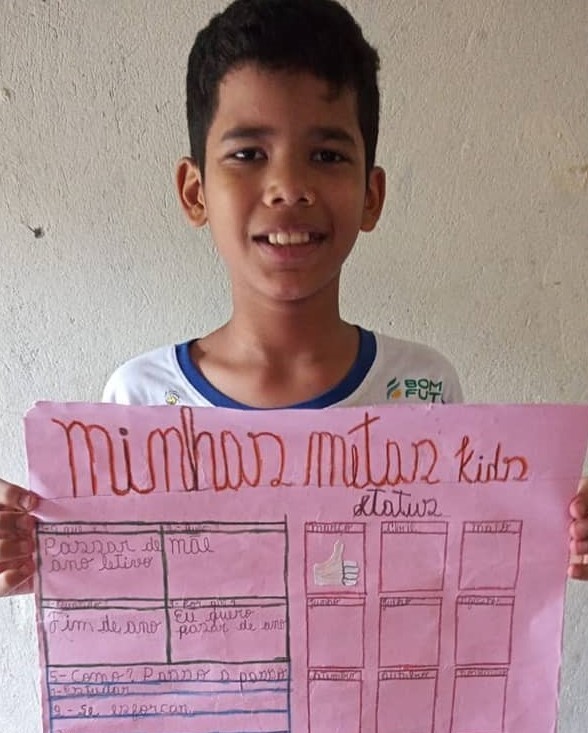 BOM
FUT
minhas metas kids
status
Passar de
ano letivo
mãe
Fim de ano
Eu quero
passar de ano
março
abril
maio
junho
julho
agosto
5- Como? Passo a passo
1- Estudar
2- Se esforçar